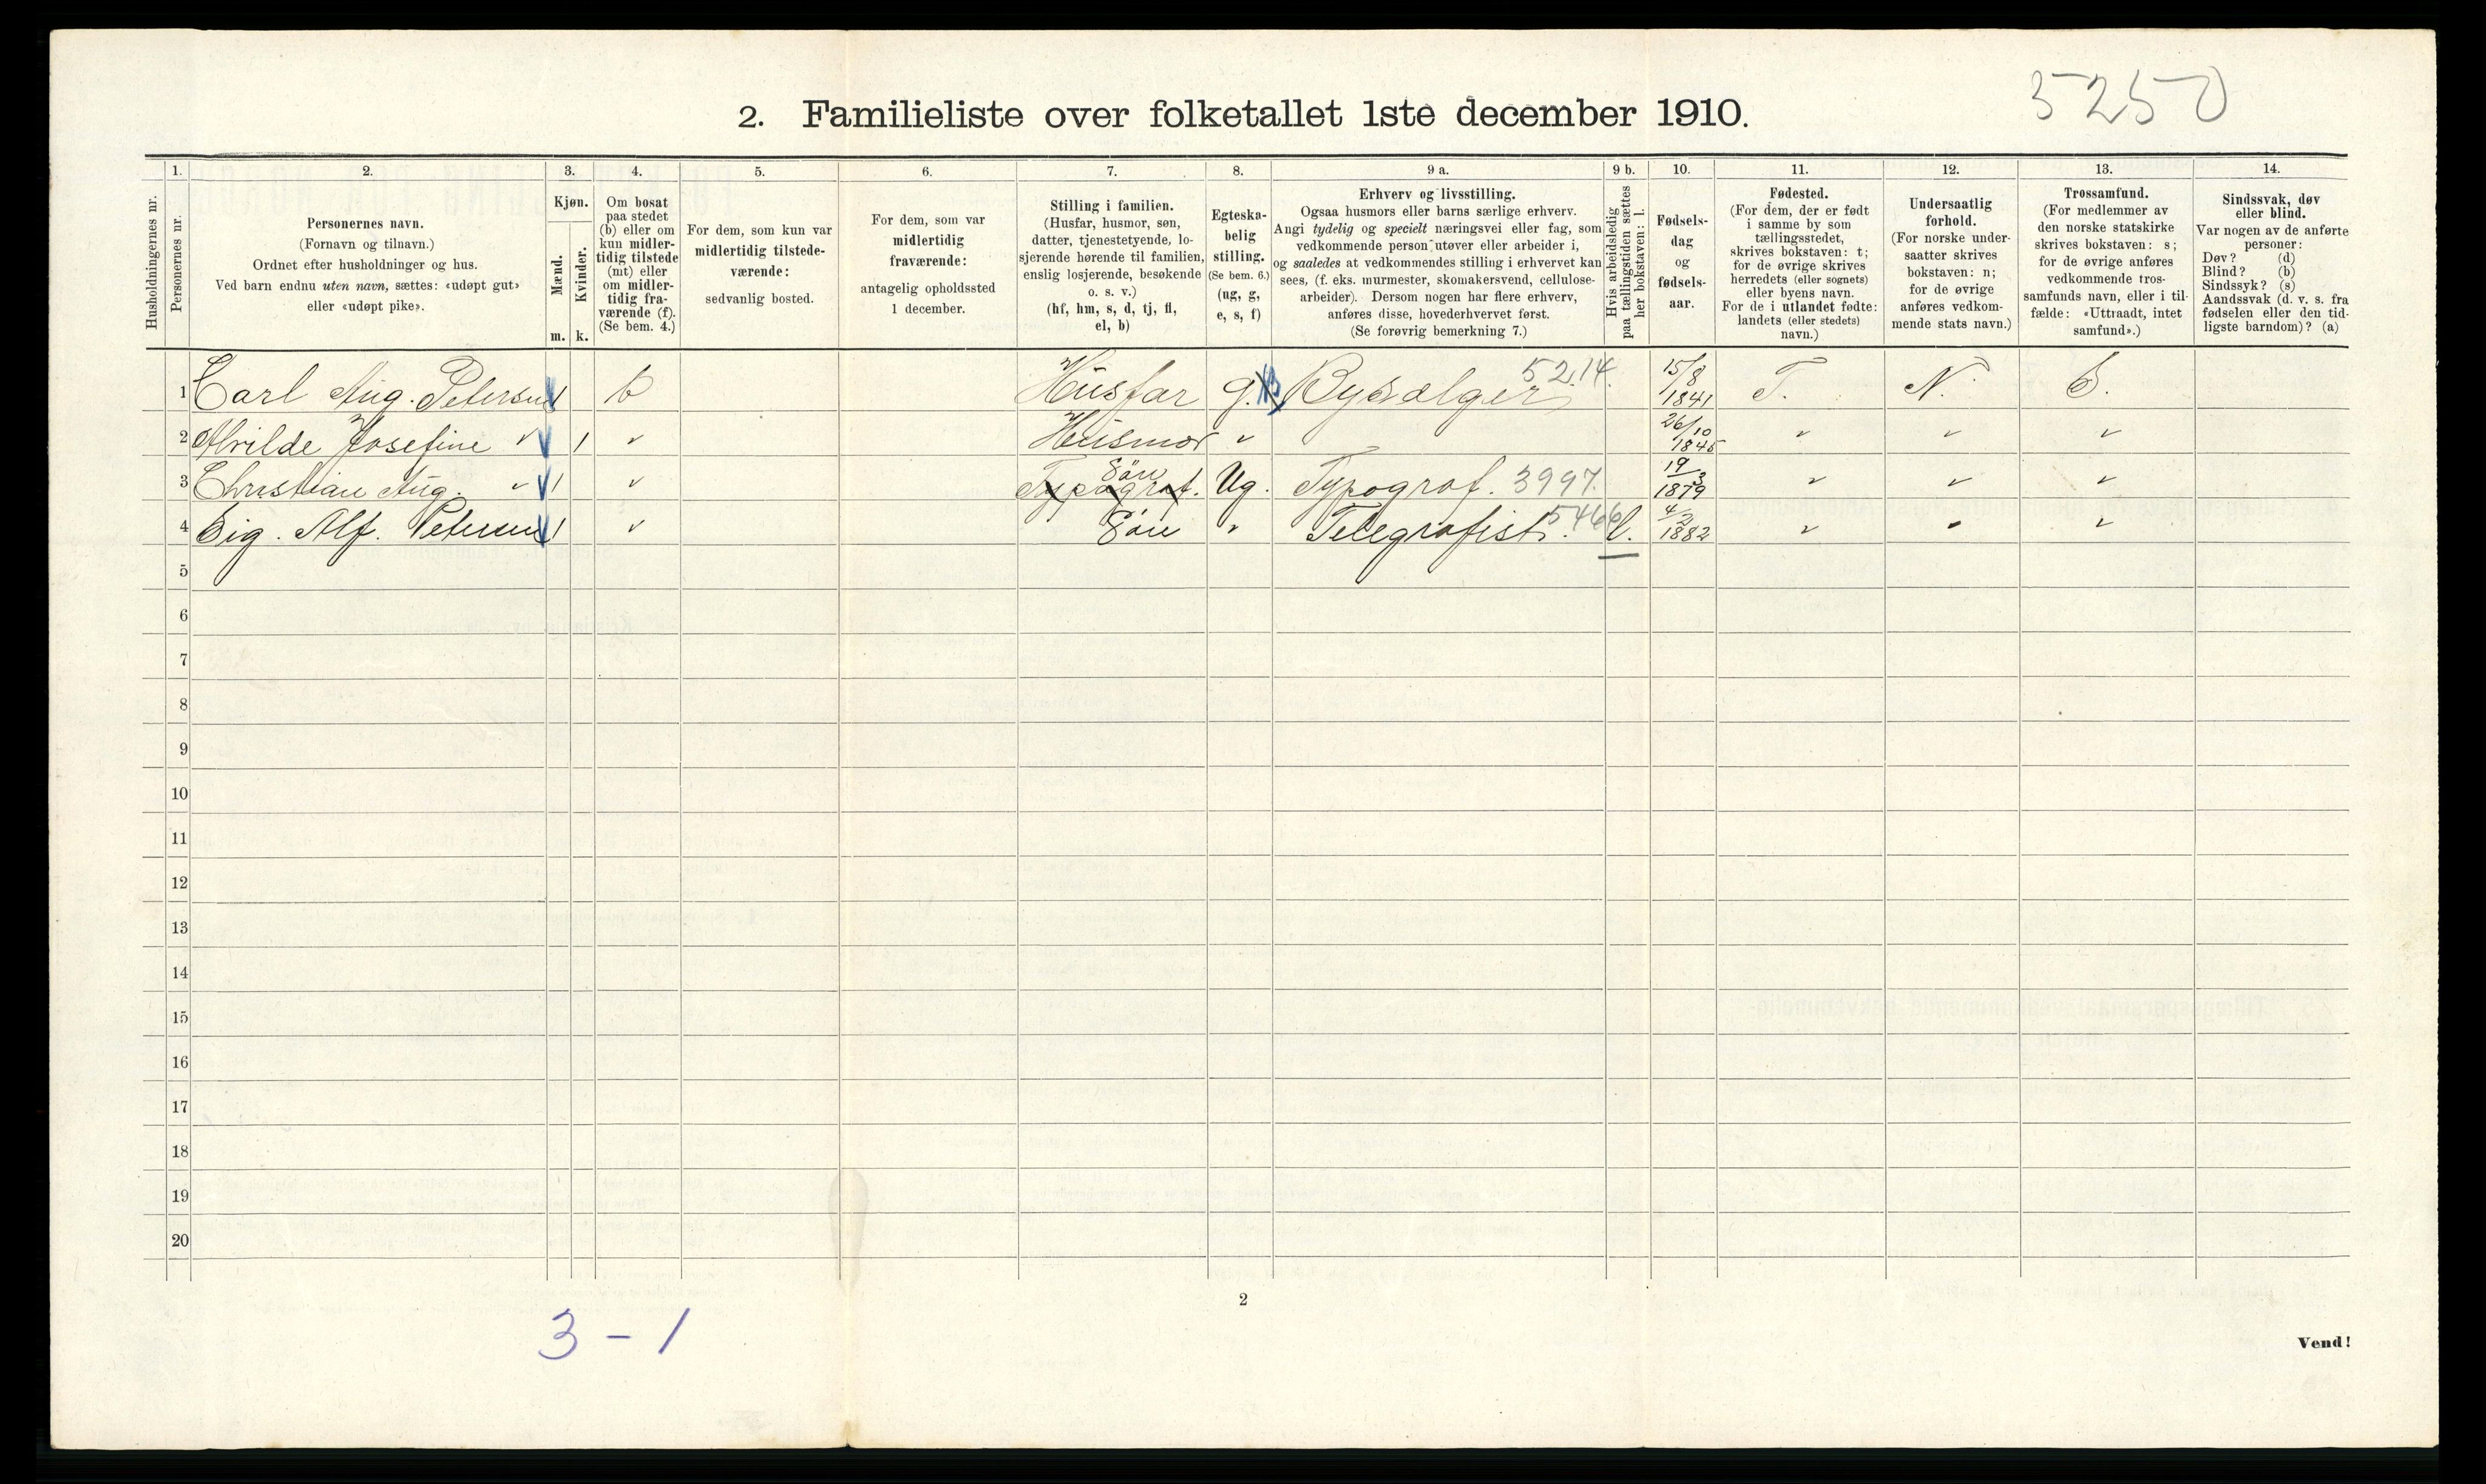 5250
2. Familieliste over folketallet 1ste december 1910.
1. 2. 3. 4. 5. 6. 7. 8. 9 a. 9 b. 10. 11. 12. 13. 14.
Husholdningernes nr.
Personernes nr.
Personernes navn.
(Fornavn og tilnavn.)
Ordnet efter husholdninger og hus.
Ved barn endnu uten navn, sættes: «udøpt gut»
eller «udøpt pike».
Kjøn.
Mænd.
Kvinder.
m. k.
Om bosat
paa stedet
(b) eller om
kun midler-
tidig tilstede
(mt) eller
om midler-
tidig fra-
værende (f).
(Se bem. 4.)
For dem, som kun var
midlertidig tilstede-
værende:
sedvanlig bosted.
For dem, som var
midlertidig
fraværende:
antagelig opholdssted
1 december.
Stilling i familien.
(Husfar, husmor, søn,
datter, tjenestetyende, lo-
sjerende hørende til familien,
enslig losjerende, besøkende
o. s. v.)
(hf, hm, s, d, tj, fl,
el, b)
Egteska-
belig
stilling.
(Se bem. 6.)
(ug, g,
e, s, f)
Erhverv og livsstilling.
Ogsaa husmors eller barns særlige erhverv.
Angi tydelig og specielt næringsvei eller fag, som
vedkommende person utøver eller arbeider i,
og saaledes at vedkommendes stilling i erhvervet kan
sees, (f. eks. murmester, skomakersvend, cellulose-
arbeider). Dersom nogen har flere erhverv,
anføres disse, hovederhvervet først.
(Se forøvrig bemerkning 7.)
Hvis arbeidsledig
paa tællingstiden sættes
her bokstaven: l.
Fødsels-
dag
og
fødsels-
aar.
Fødested.
(For dem, der er født
i samme by som
tællingsstedet,
skrives bokstaven: t;
for de øvrige skrives
herredets (eller sognets)
eller byens navn.
For de i utlandet fødte:
landets (eller stedets)
navn.)
Undersaatlig
forhold.
(For norske under-
saatter skrives
bokstaven: n;
for de øvrige
anføres vedkom-
mende stats navn.)
Trossamfund.
(For medlemmer av
den norske statskirke
skrives bokstaven: s;
for de øvrige anføres
vedkommende tros-
samfunds navn, eller i til-
fælde: «Uttraadt, intet
samfund».)
Sindssvak, døv
eller blind.
Var nogen av de anførte
personer:
Døv? (d)
Blind? (b)
Sindssyk? (s)
Aandssvak (d. v. s. fra
fødselen eller den tid-
ligste barndom)? (a)
1 Carl Aug. Petersen 1 b Husfar g. Bysælger 5214. 15/8 1841 T. N. S.
2 Alvilde Josefine " 1 " Husmor " 26/10 1845 " " "
3 Christian Aug. " 1 " Typograf. Søn Ug. Typograf. 3997. 19/3 1879 " " "
4 Sig. Alf. Petersen 1 " Søn " Telegrafist. 5466 l. 4/2 1882 " " "
5
6
7
8
9
10
11
12
13
14
15
16
17
18
19
20
2
3 - 1
Vend!